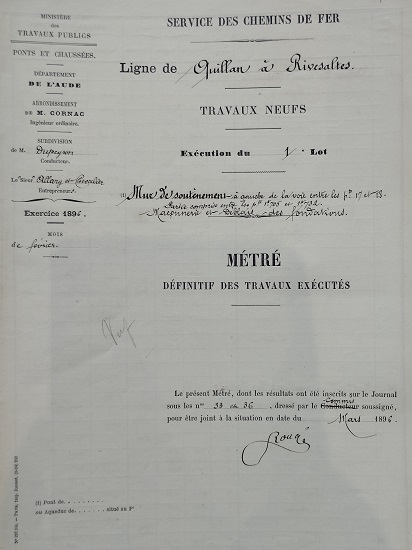 MINISTÈRE
des
TRAVAUX PUBLICS
PONTS ET CHAUSSÉES.
DÉPARTEMENT
DE L'AUDE
ARRONDISSEMENT
DE M. CORNAC
Ingénieur ordinaire.
SUBDIVISION
de M. Dupeyron
Conducteur.
Le Sieur Allary et
Entrepreneurs
Exercice 1896.
MOIS
de février.
SERVICE DES CHEMINS DE FER
Ligne de Quillan à Rivesaltes.
TRAVAUX NEUFS
Exécution du 1er Lot
(1) Mur de soutènement à gauche de la voie entre les pls 17 et 88.
Partie comprise entre les pts 1.705 et 1.732
Maçonnerie et Déblais des fondations.
MÉTRÉ
DÉFINITIF DES TRAVAUX EXÉCUTÉS
Vu
Le présent Métré, dont les résultats ont été inscrits sur le Journal
sous les nos 33 et 36, dressé par le Conducteur Commis soussigné,
pour être joint à la situation en date du Mars 1896.
Rougé
(1) Pont de
ou Aqueduc de situé au P